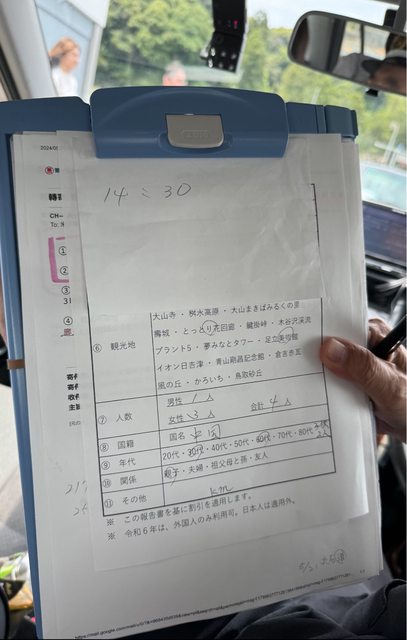 14:30
2024/0
CH
①
②
③
31
④
大山寺・桝水高原・大山まきばみるくの里
⑥ 観光地
壽城・とっとり花回廊・鍵掛峠・木谷沢渓流
プラント5・夢みなとタワー・足立美術館
イオン日吉津・青山剛昌記念館・倉吉赤瓦
風の丘・かろいち・鳥取砂丘
⑦ 人数
男性 1 人
女性 3 人 合計 4 人
⑧ 国籍 国名 中国
⑨ 年代 20代・30代・40代・50代・60代・70代・80代
⑩ 関係 親子・夫婦・祖父母と孫・友人
⑪ その他 km
※ この報告書を基に割引を適用します。
※ 令和6年は、外国人のみ利用可。日本人は適用外。